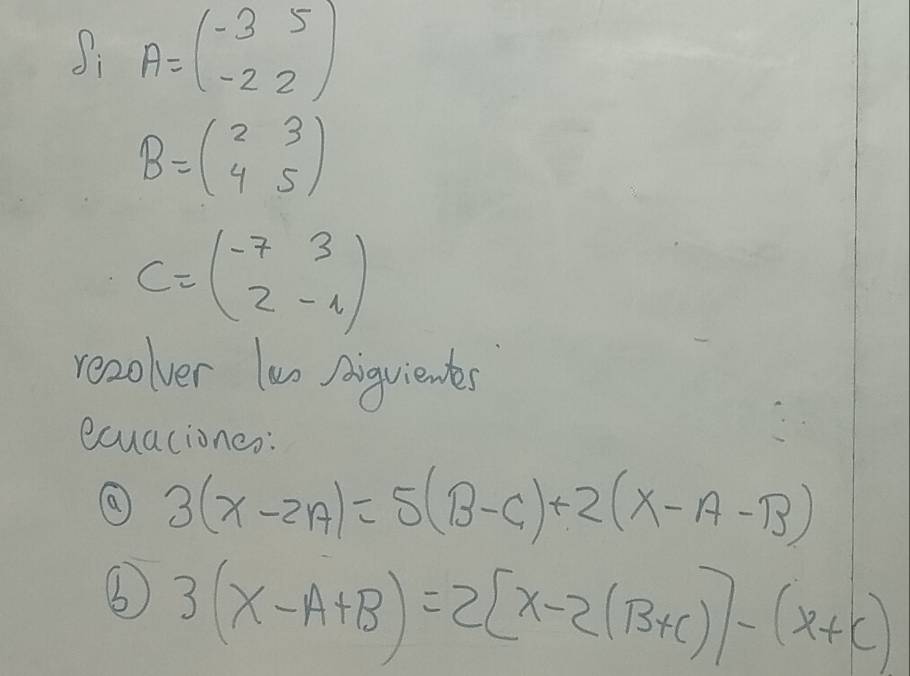 Si A = (-3 5
-2 2)
B = (2 3
4 5)
C = (-7 3
2 -1)
resolver las siguientes
ecuaciones:
ⓐ 3(X-2A) = 5(B-C)+2(X-A-B)
ⓑ 3(X-A+B) = 2[X-2(B+C)] - (X+C)